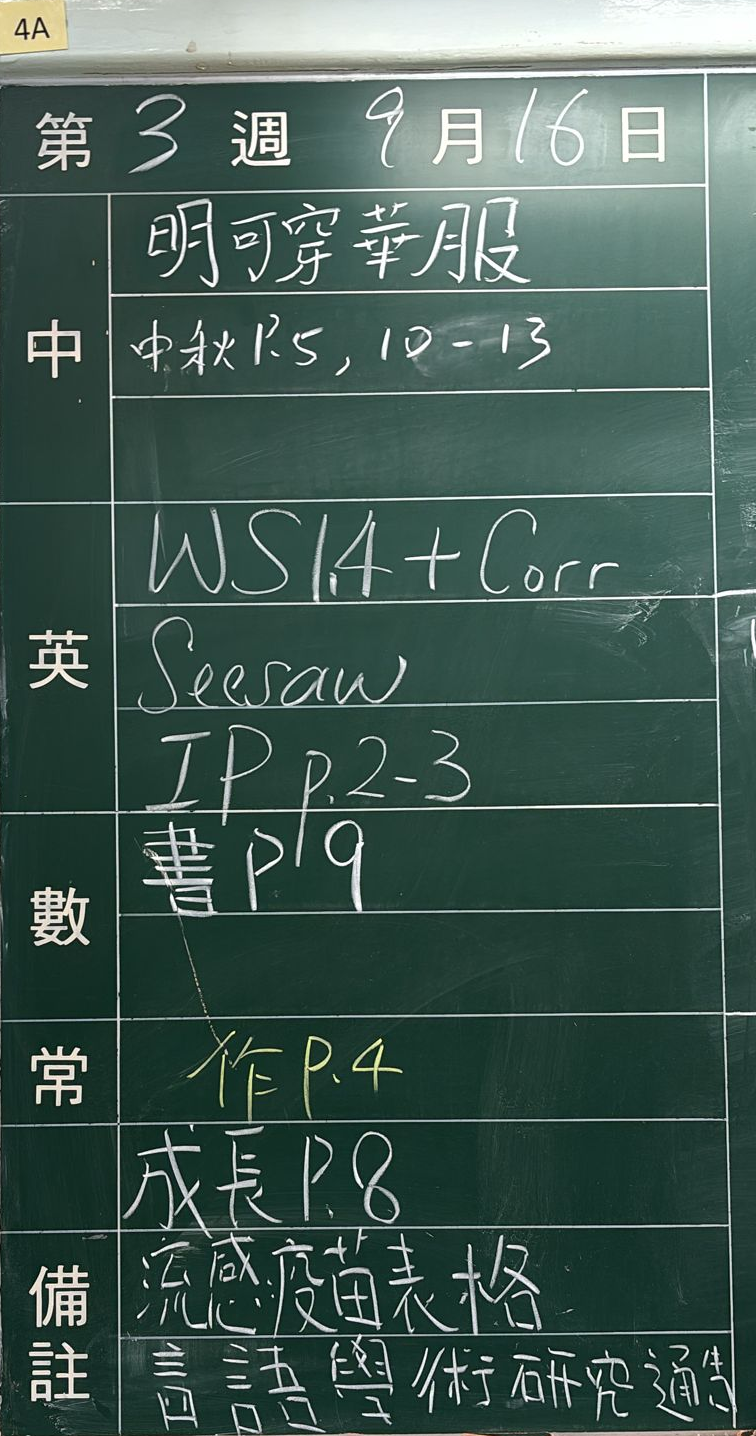 4A
第 3 週 9 月 16 日
中
明可穿華服
中秋 P.5, 10-13
英
WS1.4 + Corr
Seesaw
IP p.2-3
數
書 P19
常
作 P.4
成長 P.8
備註
流感疫苗表格
言語學術研究通告